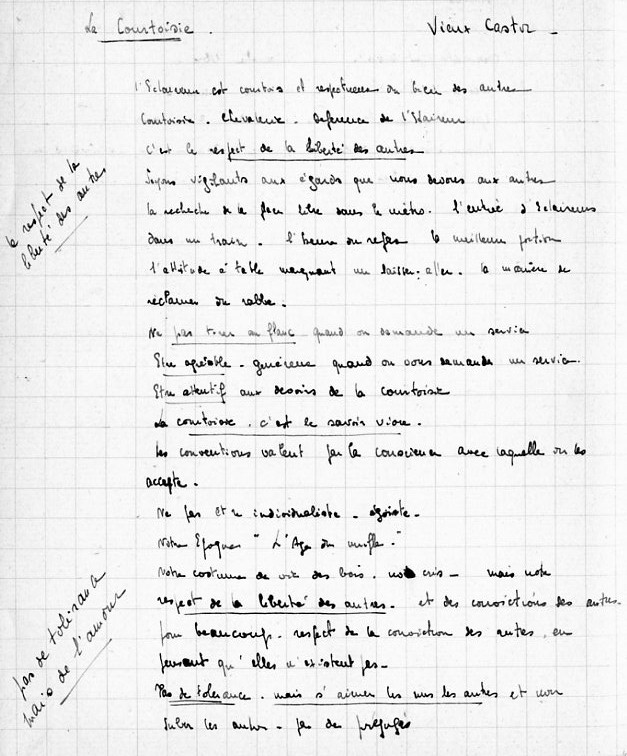 La Courtoisie. Vieux Castor -
l'Eclaireur est courtois et respectueux du bien des autres
Courtoisie. Chevalerie. Déférence de l'Eclaireur
C'est le respect de la liberté des autres
Soyons vigilants aux égards que nous devons aux autres
la recherche de la place libre dans le métro. l'entrée d'Eclaireurs
dans un train. l'heure du repas la meilleure portion
l'attitude à table marquant un laisser-aller. la manière de
réclamer du rabbe.
le respect de la
liberté des autres
Ne pas tirer au flanc quand on demande un service
Etre agréable - généreux quand on vous demande un service.
Etre attentif aux devoirs de la courtoisie
La courtoisie, c'est le savoir vivre.
les conventions valent par la conscience avec laquelle on les
accepte.
Ne pas etre individualiste - égoiste.
Notre Epoque "L'Age du mufle."
Notre costume de vie des bois. nos cris - mais notre
respect de la liberté des autres. et des convictions des autres.
pour beaucoup. respect de la conviction des autres, en
pensant qu'elles n'existent pas -
Pas de tolérance. mais s'aimer les uns les autres et non
subir les autres - pas de préjugés
pas de tolérance
mais de l'amour